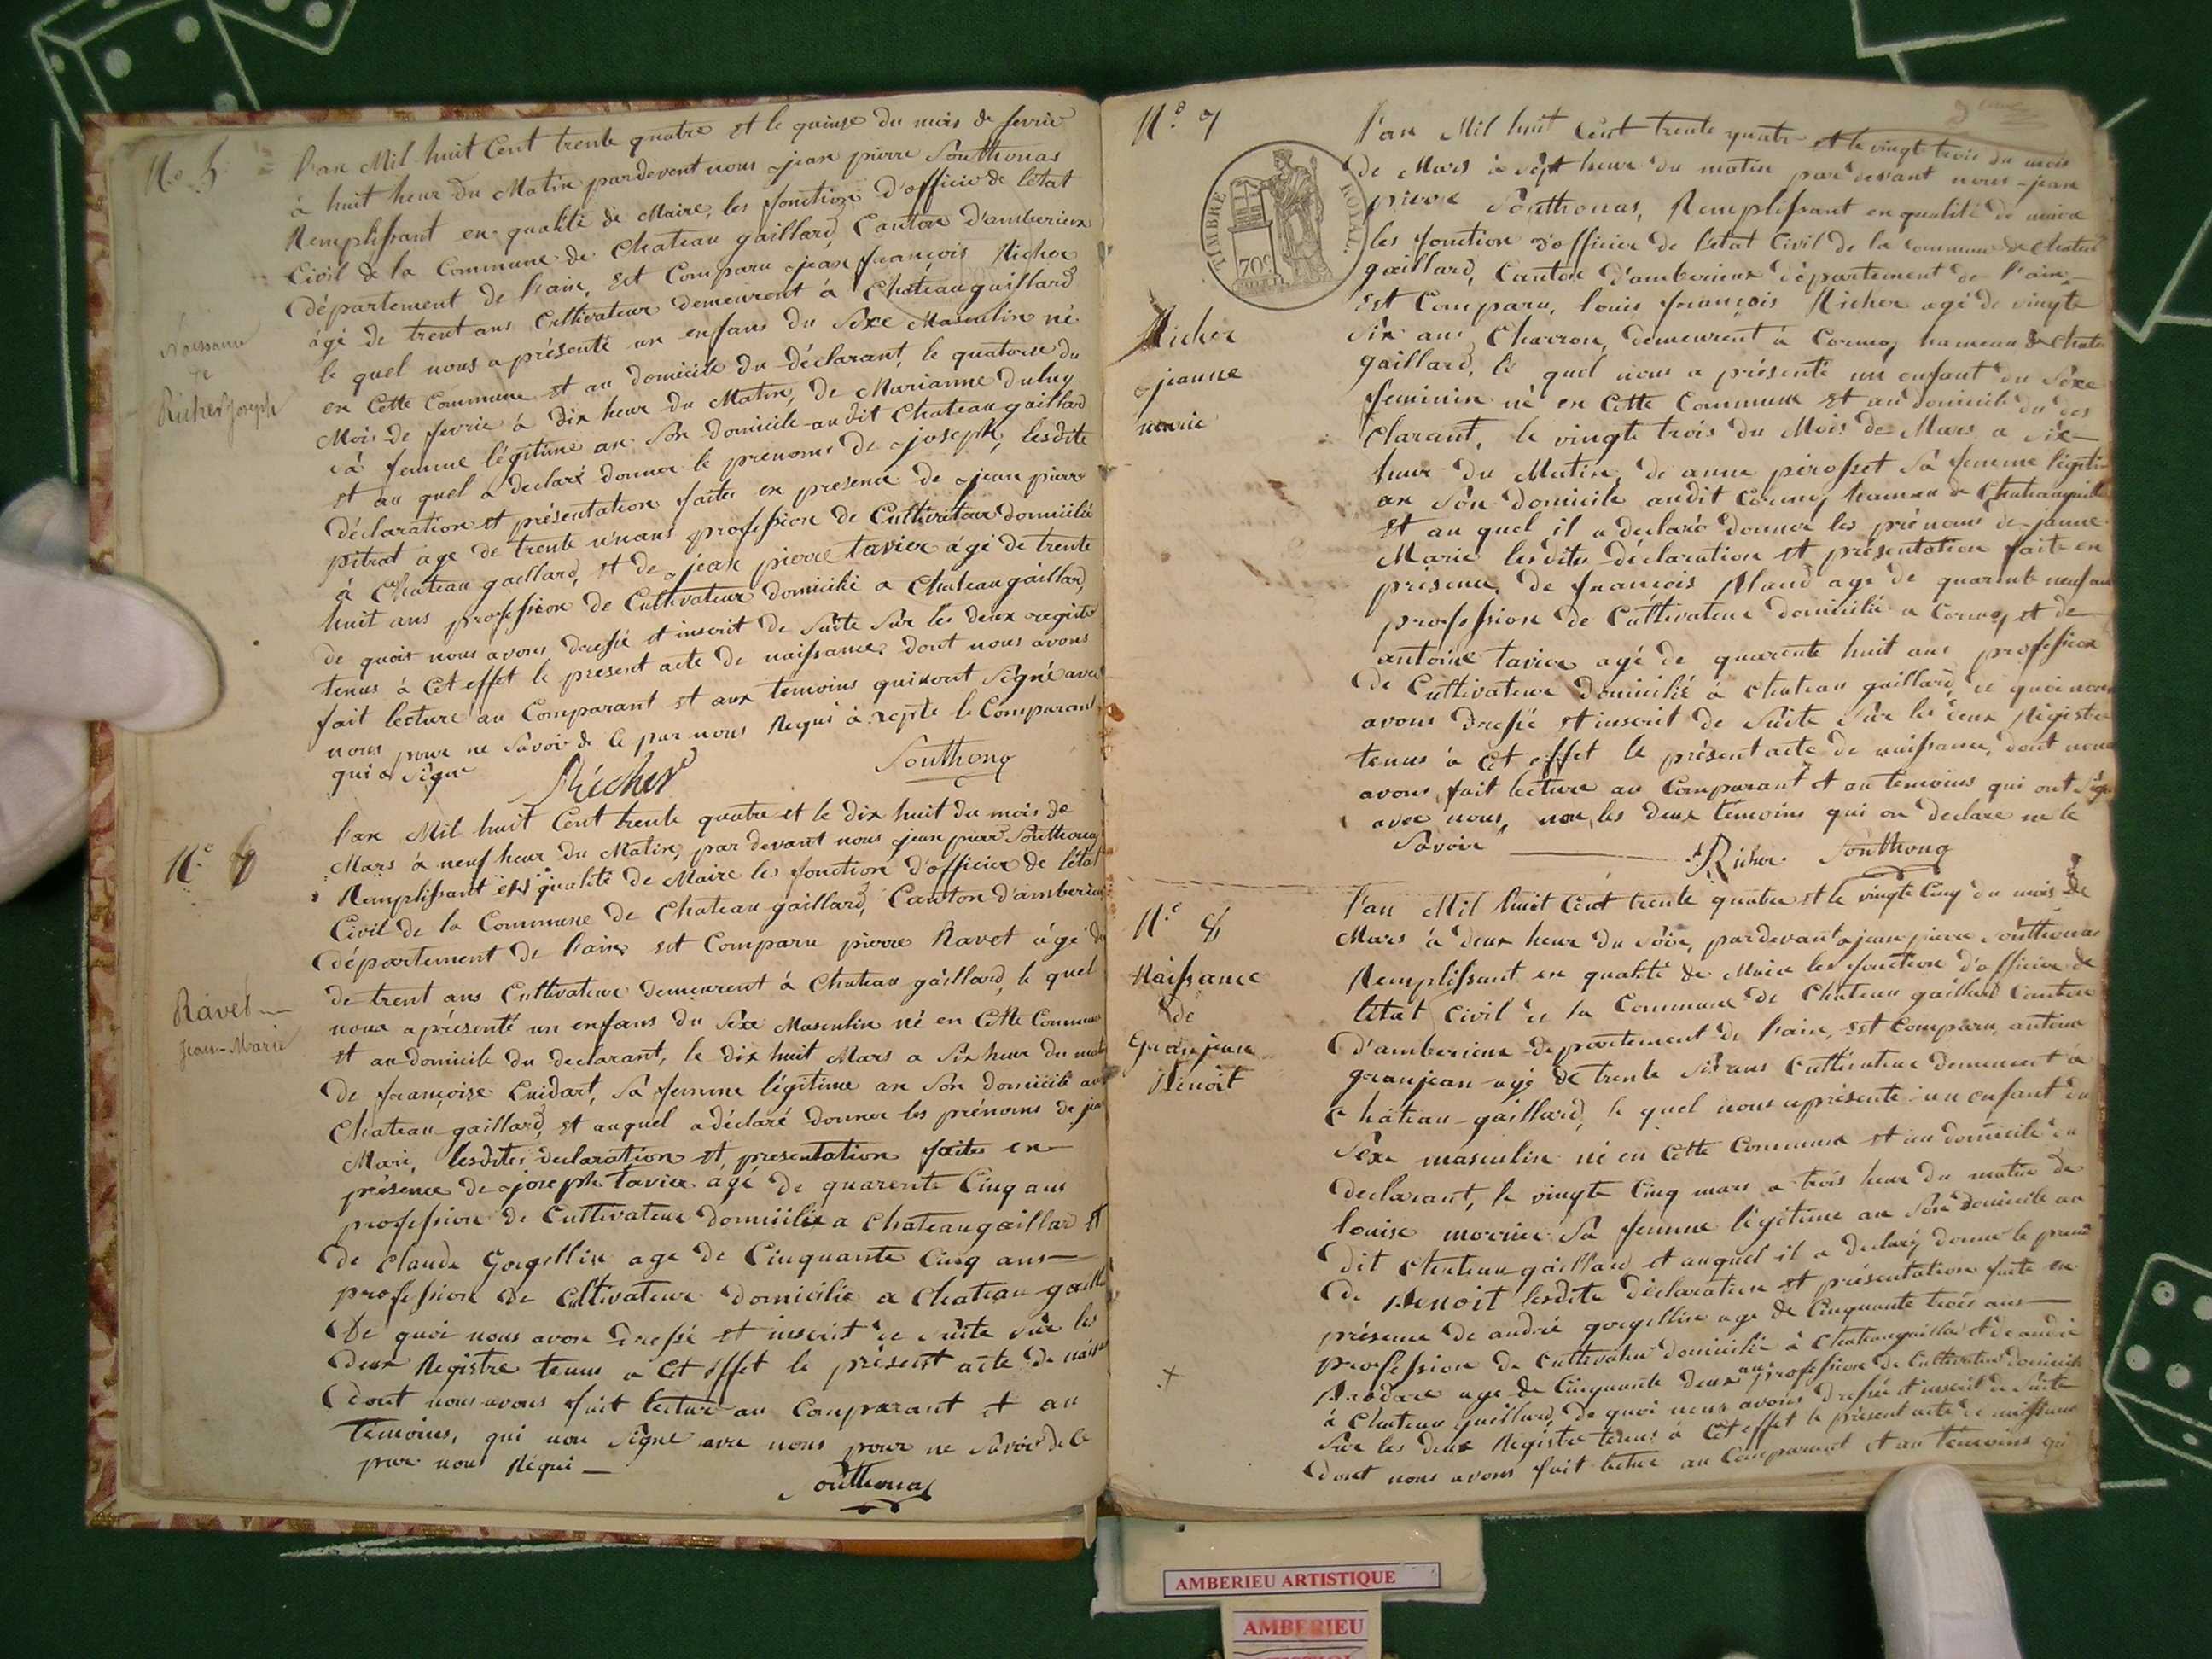 N.o 5.
l'an Mil huit Cent trente quatre et le quinze du mois de fevrie
à huit heur du Matin pardevent nous jean pierre Southonas
Remplissant en qualité de Maire, les fonction d'officie de létat
Civil de la Commune de Chateau gaillard, Canton d'amberieux
département de l'ain, est Comparu jean françois Richer
âgé de trent ans Cultivateur demeuront à Chateau gaillard
le quel nous a présenté un enfans du Sexe Masculin né
en Cette Commune et au domicile du déclarant, le quatorse du
Mois de fevrie à dix heur du Matin, de Marianne
sà femme légitime an Son domicile audit Chateau gaillard
et au quel a declaré donner le prenoms de joseph, lesdite
déclaration et présentation faites en presence de jean pierre
pitrat age de trente un ans profession de Cultivateur domicilié
à Chateau gaillard, et de jean pierre tavier âgé de trente
huit ans profession de Cultivateur domicilié a Chateau gaillard,
de quoi nous avons dressé et inscrit de Suite Sur les deux registre
tenus à Cet effet le present acte de naissance, dont nous avons
fait lecture au Comparant et aux temoins qui nont Signé avec
nous pour ne Savoir de Ce par nous Requi à repte le Comparant
qui a Signe
Richer
Southonas
Naissance
de
Richer Joseph
N.o 6
l'an Mil huit Cent trente quatre et le dix huit du mois de
Mars à neuf heur du Matin, par devant nous jean pierre Southonas
Remplissant en qualité de Maire les fonction d'officier de létat
Civil de la Commune de Chateau gaillard, Canton d'amberieux
département de l'ain, est Comparu pierre Ravet âgé de
de trent ans Cultivateur demeurent à Chateau gaillard, le quel
nous a présenté un enfans du Sexe Masculin né en Cette Commune
et au domicile du declarant, le dix huit Mars a Six heur du matin
de françoise Cuidart, Sà femme légitime an Son domicile au
Chateau gaillard, et auquel a déclaré donner les prénoms de jean
Mari, lesdites declaration et presentation faites en
présence de joseph tavier agé de quarente Cinq ans
profession de Cultivateur domicilie a Chateau gaillar et
de Claude Gorgellin age de Cinquante Cinq ans
profession de Cultivateur domicilie a Chateau gaill
De quoi nous avon dressé et inscrit de Suite sur les
deux Registre tenus a Cet effet le présent acte de naiss
dont nous avons fait lecture au Comparant et au
temoins, qui non Signe avec nous pour ne Savoir de Ce
par nous Requi
Southonas
Ravet
Jean-Marie
N.o 7
TIMBRE ROYAL.
70c
l'an Mil huit Cent trente quatre et le vingt trois du mois
de Mars à sept heur du matin par devant nous jean
pierre Southonas, Remplissant en qualité de maire
les fonction d'officier de létat Civil de la commune de Chateau
gaillard, Canton d'amberieux département de l'ain
est Comparu, louis françois Richer agé de vingte
Six ans Charron, demeurent à Cormoz hameau de Chateau
gaillard, le quel nous a présenté un enfant du Sexe
feminin né en Cette Commune et au domicile du dé
clarant, le vingte trois du Mois de Mars a Six
heur du Matin, de anne perosset Sà femme légitim
an Son domicile audit Cormoz hameau de Chateau gaill
et au quel il a declaré donner les prénoms de janne
Marie lesdites déclaration et présentation faite en
présence, de françois age de quarente neuf ans
profession de Cultivateur domicilié a Cormoz, et de
antoine tavier agé de quarente huit ans profession
de Cultivateur domicilié à Chateau gaillard, de quoi nous
avons dressé et inscrit de Suite Sur les deux Registre
tenus à Cet effet le présent acte de naissance, dont nous
avons fait lecture au Comparant et au temoins qui ont signe
avec nous, non les deux temoins qui on declare ne le
Savoir
Richer Southonas
Richer
jeanne
marie
N.o 8
Naissance
de
Granjean
Benoit
l'an Mil huit Cent trente quatre et le vingte Cinq du mois de
Mars à deux heur du Soir, pardevant jean pierre Southonas
Remplissant en qualité de Maire les fonction d'officier de
létat Civil de la Commune de Chateau gaillard Canton
d'amberieux département de l'ain, est Comparu, antoine
granjean agé de trente Six ans Cultivateur demeurent à
Château-gaillard, le quel nous a présente un enfant du
Sexe masculin né en Cette Commune et au domicile du
declarant, le vingte Cinq mars a trois heur du matin de
louise Sà femme légitime an Son domicile au
dit Chateau gaillard et auquel il a declaré donne le preno
de Benoit lesdite déclaration et présentation faite en
présence de andré gorgellin age de Cinquante trois ans
profession de Cultivateur domicilié à Chateau gaillar et de andré
age de Cinquante deux ans profession de Cultivateur domicile
à Chateau gaillard, de quoi nous avons dressé et inscrit de Suite
Sur les deux Registre tenus à Cet effet le présent acte de naissance
dont nous avons fait lecture au Comparant et au temoins qui
AMBERIEU ARTISTIQUE
AMBERIEU